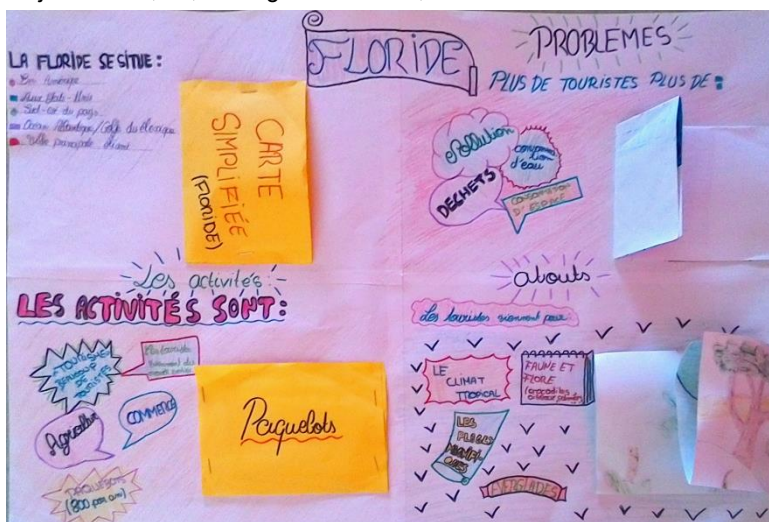 FLORIDE
LA FLORIDE SE SITUE :
En Amérique
Aux États-Unis
Sud-Est du pays
Océan Atlantique / Golfe du Mexique
Ville principale : Miami
CARTE
SIMPLIFIÉE
(FLORIDE)
PROBLEMES
PLUS DE TOURISTES PLUS DE :
Pollution
consomma
tion
d'eau
DECHETS
CONSOMMATION
D'ESPACE
Les activités :
LES ACTIVITÉS SONT :
BEAUCOUP
DE
TOURISTES
Agriculture
COMMERCE
PAQUEBOTS
(800 par an)
Paquebots
atouts
Les touristes viennent pour :
LE
CLIMAT
TROPICAL
FAUNE ET
FLORE
(crocodiles
LES
PLAGES
EVERGLADES